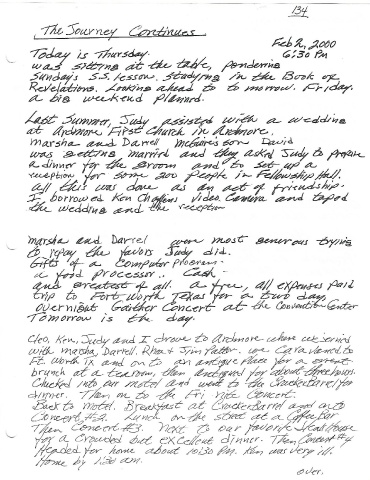 134
The Journey Continues
Feb 2, 2000
6:30 Pm
Today is Thursday.
was sitting at the table, pondering
Sunday's S.S. lesson. Studying in the Book of
Revelations. Looking ahead to to morrow. Friday.
a big weekend planned.
Last Summer, Judy assisted with a wedding
at Ardmore First Church in Ardmore.
marsha and Darrell McGuire's son David
was getting married and they asked Judy to prepare
a dinner for the groom and to set up a
reception for some 200 people in Fellowship Hall.
all this was done as an act of friendship.
I, borrowed Ken Video Camera and taped
the wedding and the reception
marsha and Darrel were most generous trying
to repay the favors Judy did.
Gifts of a Computer Program.
a food processor.. Cash
and greatest of all. a free, all expenses paid
trip to Fort Worth Texas for a two day,
overnight Gaither Concert at the Convention Center
Tomorrow is the day.
Cleo, Ken, Judy and I drove to Ardmore where we joined
with marsha, Darrell, Rhea & Jim we Caravaned to
Ft. Worth Tx and on to an antique place for a
brunch at a tearoom, then antiqued for about three hours.
Checked into our motel and went to the Cracker Barrel for
dinner. Then on to the Fri nite Concert.
Back to motel. Breakfast at Cracker Barrel and onto
Concert #2. Lunch on the street at a
Then Concert #3. Next to our favorite Steak House
for a Crowded but excellent dinner. Then Concert #4
Headed for home about 10:30 PM. Ken was very ill.
Home by 1:30 am.
over.